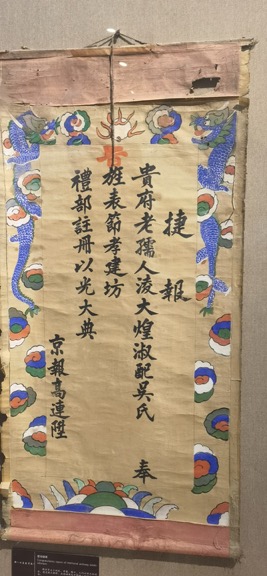 捷報
貴府老孺人淩大煌淑配吳氏 奉
旨
旌表節孝建坊
禮部註冊以光大典
京報高連陞